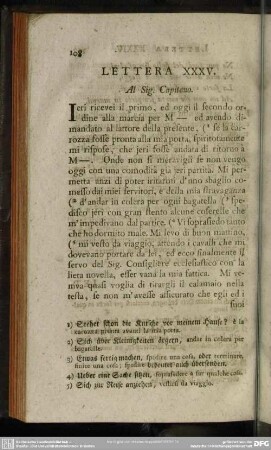 108
LETTERA XXXV.
Al Sig. Capitano.
Ieri ricevei il primo, ed oggi il secondo or-
dine alla marcia per M — ed avendo di-
mandato al lattore della presente, (¹ se la car-
rozza fosse pronta alla mia porta, spiritosamente
mi rispose, che jeri fosse andata di ritorno a
M—. Onde non si meravigli se non vengo
oggi con una comodità gia jeri partita. Mi per-
metta anzi di poter
messo dai miei servitori, è della mia stravaganza
(² d'andar in colera per ogni bagatella (³ spe-
disco jeri con gran stento alcune coserelle che
m'impedivano dal partire. (⁴ Vi soprasiedo tanto
che ho dormito male. Mi levo di buon mattino,
(⁵ mi vesto da viaggio, attendo i cavalli che mi
dovevano portare da lei, ed ecco finalmente il
servo del Sig. Consigliere ecclesiastico con la
lieta novella, esser vana la mia fatica. Mi ve-
niva quasi voglia di tirargli il calamaio nella
testa, se non m'avesse assicurato che egli ed i
suoi
1) Stehet schon die Kutsche vor meinem Hause? è la
2) Sich über Kleinigkeiten ärgern, andar in colera per
bagatelle.
3) Etwas fertig machen, spedire una cosa, oder terminare,
finire una cosa; spedire bedeutet auch übersenden.
4) Ueber eine Sache sitzen, soprasedere a far qualche cosa.
5) Sich zur Reise anziehen, vestirsi da viaggio.